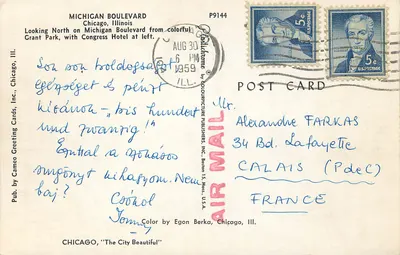 MICHIGAN BOULEVARD
Chicago, Illinois
P9144
Looking North on Michigan Boulevard from colorful
Grant Park, with Congress Hotel at left.
AUG 30
6 PM
1959
ILL.
5¢
5¢
POST CARD
Pub. by Cameo Greeting Cards, Inc., Chicago, Ill.
Son son boldogságot
egészséget és pénzt
kívánok – bis hundert
und zwanzig"
Ezuttal a
sürgönyt kihagyom. Nem
baj?
Csókol
by COLOURPICTURE PUBLISHERS, INC., Boston 15, Mass., U.S.A.
AIR MAIL
Mr.
Alexandre FARKAS
34 Bd. Lafayette
CALAIS (P de C)
FRANCE
Color by Egon Berka, Chicago, Ill.
CHICAGO, "The City Beautiful"